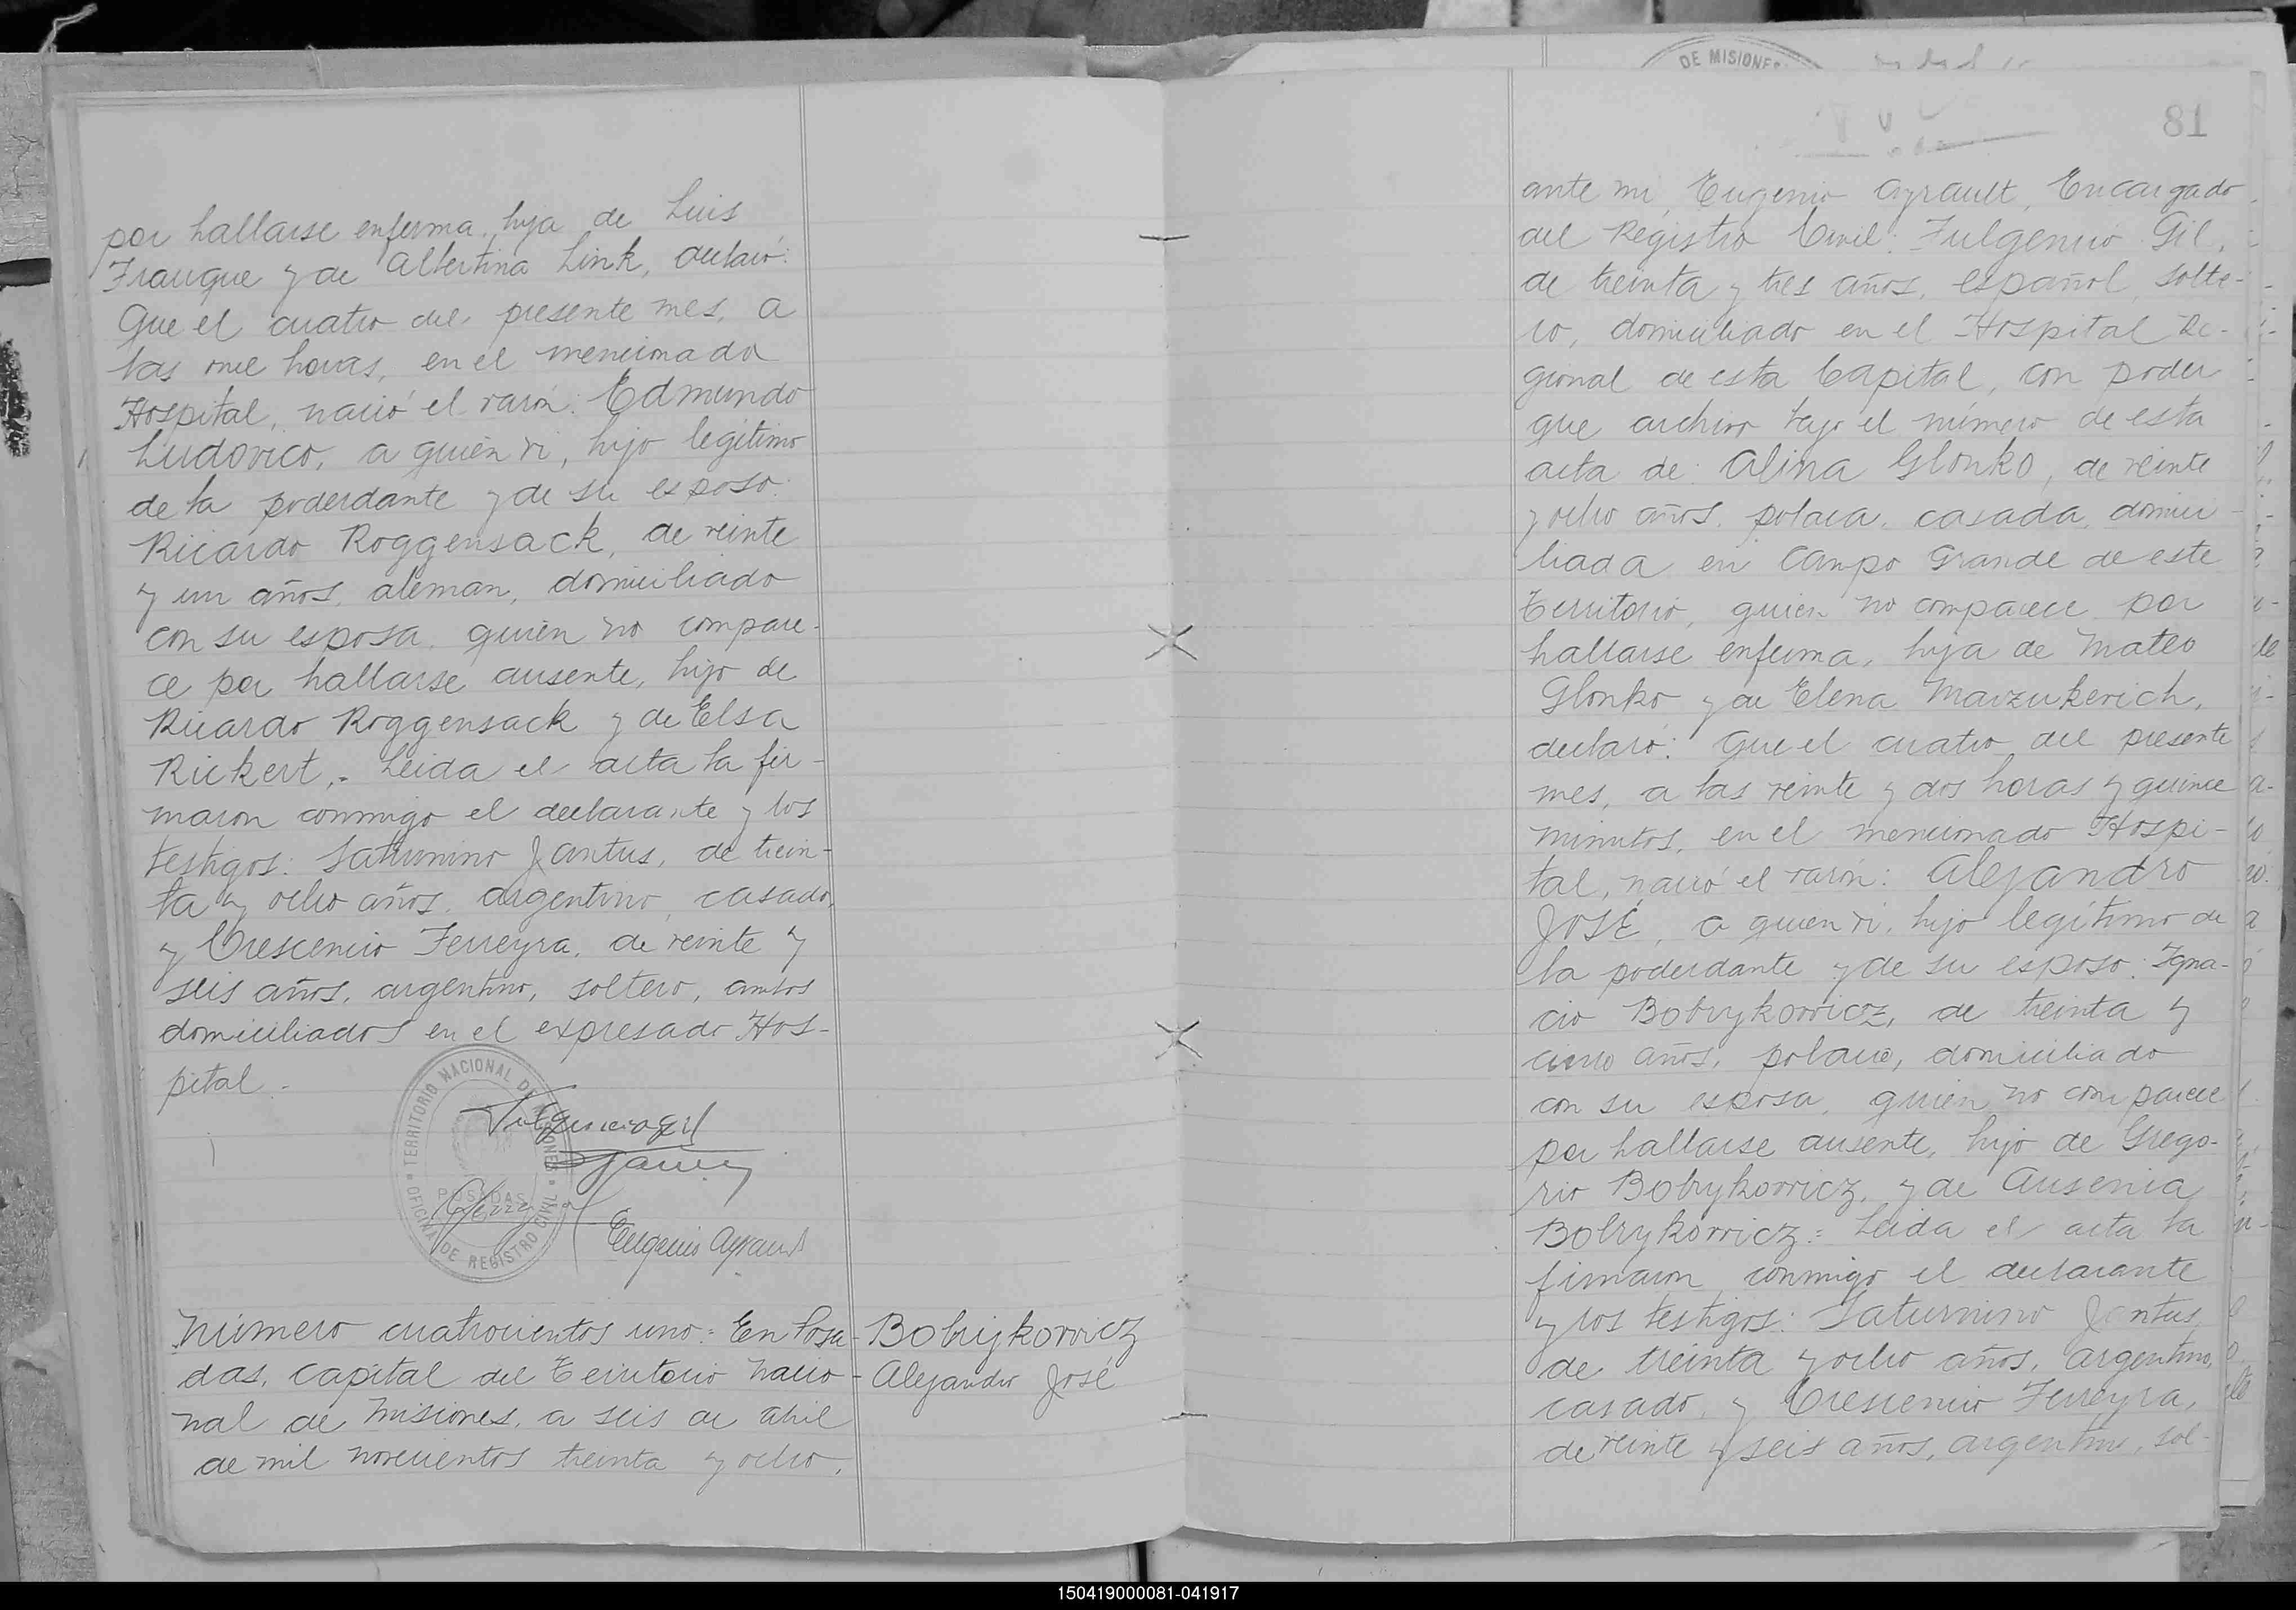 por hallarse enferma, hija de Luis
Frauque y de Albertina Link, declaró:
Que el cuatro del presente mes, a
las once horas, en el mencionado
Hospital, nació el varón: Edmundo
Ludovico, a quien ví, hijo legítimo
de la poderdante y de su esposo:
Ricardo Roggensack, de veinte
y un años, aleman, domiciliado
con su esposa, quien no compare-
ce por hallarse ausente, hijo de
Ricardo Roggensack y de Elsa
Rickert.- Leida el acta la fir-
maron conmigo el declarante y los
testigos: Saturnino Jantus, de trein-
ta y ocho años, argentino, casado,
y Crescencio Ferreyra, de veinte y
seis años, argentino, soltero, ambos
domiciliados en el expresado Hos-
pital.-
TERRITORIO NACIONAL DE MISIONES
POSADAS
OFICINA DE REGISTRO CIVIL
Fulgencio Gil
Eugenio Ayrault
Número cuatrocientos uno: En Posa-
das, Capital del Territorio Nacio-
nal de Misiones, a seis de abril
de mil novecientos treinta y ocho,
Bobrykowicz
Alejandro José
DE MISIONES
81
ante mi, Eugenio Ayrault, Encargado
del Registro Civil: Fulgencio Gil,
de treinta y tres años, español, solte-
ro, domiciliado en el Hospital Re-
gional de esta Capital, con poder
que archivo bajo el número de esta
acta de: Alina Glonko, de veinte
y ocho años, polaca, casada, domici-
liada en Campo Grande de este
Territorio, quien no comparece por
hallarse enferma, hija de Mateo
Glonko y de Elena Marzukevich,
declaró: Que el cuatro del presente
mes, a las veinte y dos horas y quince
minutos, en el mencionado Hospi-
tal, nació el varón: Alejandro
José, a quien ví, hijo legítimo de
la poderdante y de su esposo: Igna-
cio Bobrykowicz, de treinta y
cinco años, polaco, domiciliado
con su esposa, quien no comparece
por hallarse ausente, hijo de Grego-
rio Bobrykowicz, y de Ausenia
Bobrykowicz.= Leida el acta la
firmaron conmigo el declarante
y los testigos: Saturnino Jantus,
de treinta y ocho años, argentino,
casado, y Crescencio Ferreyra,
de veinte y seis años, argentino, sol-
150419000081-041917